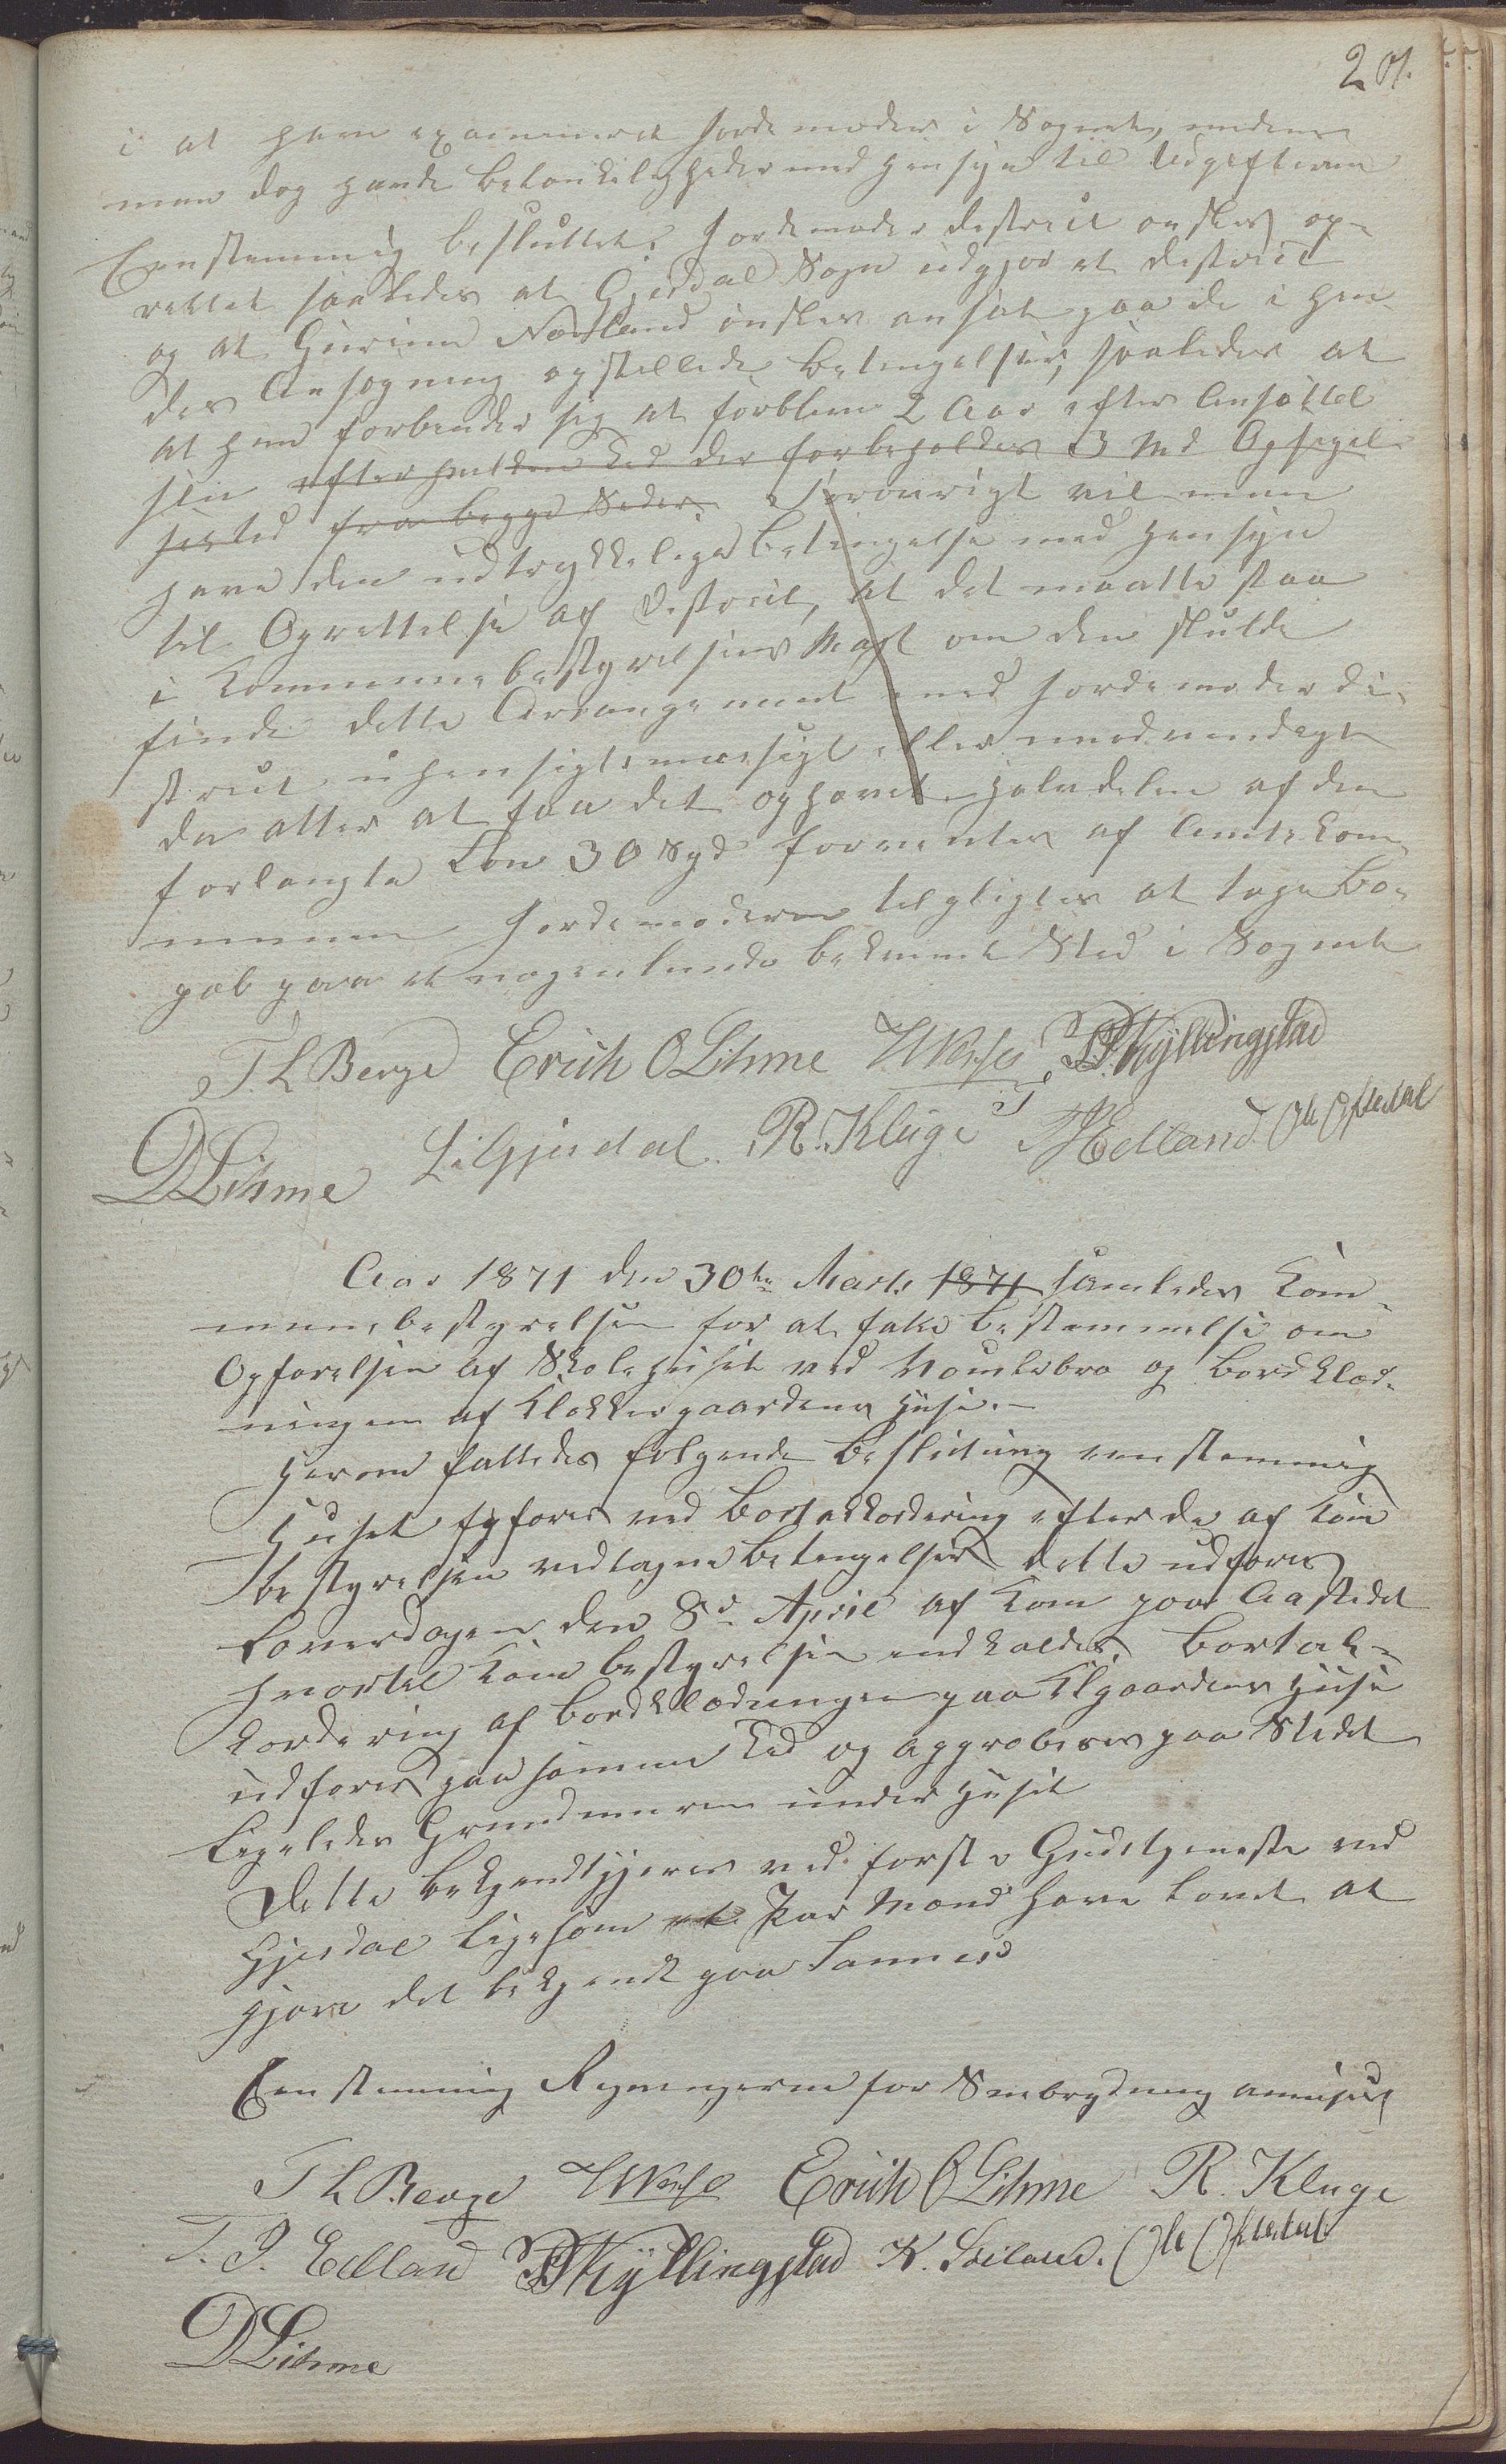 201.
i at have examineret Jordemoder i Sognet, medens
man dog havde Betænkeligheder med Hensyn til Udgifterne
Eenstemmig besluttet: Jordemoder District ønskes op-
rettet saaledes at Gjesdal Sogn udgjør et District
og at Gurine Nordland ønskes ansat paa de i hen-
des Ansøgning opstillede Betingelser, saaledes at
at hun forbinder sig at forblive 2 Aar efter Ansættel
sen efter hvilken Tid der forbeholdes 3 Md Opsigel-
sestid fra begge Sider. Forøvrigt vil man
have den udtrykkelige Betingelse med Hensyn
til Oprettelse af District, at det maatte staa
i Kommunebestyrelsens Magt om den skulde
finde dette Arrangement med Jordemoderdi-
strict uhensigtsmæssigt eller unødvendigt
da atter at faa det ophævet. Halvdelen af den
forlangte Løn 30 Spd forventes af Amtskom-
munen Jordemoderen tilpligtes at tage Bo-
pæl paa et nogenlunde bekvemt Sted i Sognet
T. L Berge Erich O Lihme S Kyllingstad
D Lihme L. Gjesdal. R. Kluge T J Edland Ole Oftedal
Aar 1871 den 30te Marts 1871 samledes Kom-
munebestyrelsen for at fatte Bestemmelse om
Opførelsen af Skolehuset ved Vaulebro og Bordklæd-
ningen af Klokkergaardens Huse.-
Herom fattedes følgende Beslutning eenstemmig
Huset opføres ved Bortakkordering efter de af Kom
bestyrelsen vedtagne Betingelser dette udføres
Løverdagen den 8d April af Kom paa Aastedet
hvortil Kom bestyrelsen indkaldes. Bortak-
kordering af Bordklædningen paa Klgaardens Huse
udføres paa samme Tid og approberes paa Stedet
Ligeledes Grundmuren under Huset
Dette bekjendtgjøres ved første Gudstjeneste ved
Gjesdal ligesom et Par Mænd have lovet at
gjøre det bekjendt paa Sannes
Eenstemmig Regningerne for Snebrydning anvist
T L Berge Erich O Lihme R. Kluge
T. J. Edland S Kyllingstad Ole Oftedal
D Lihme